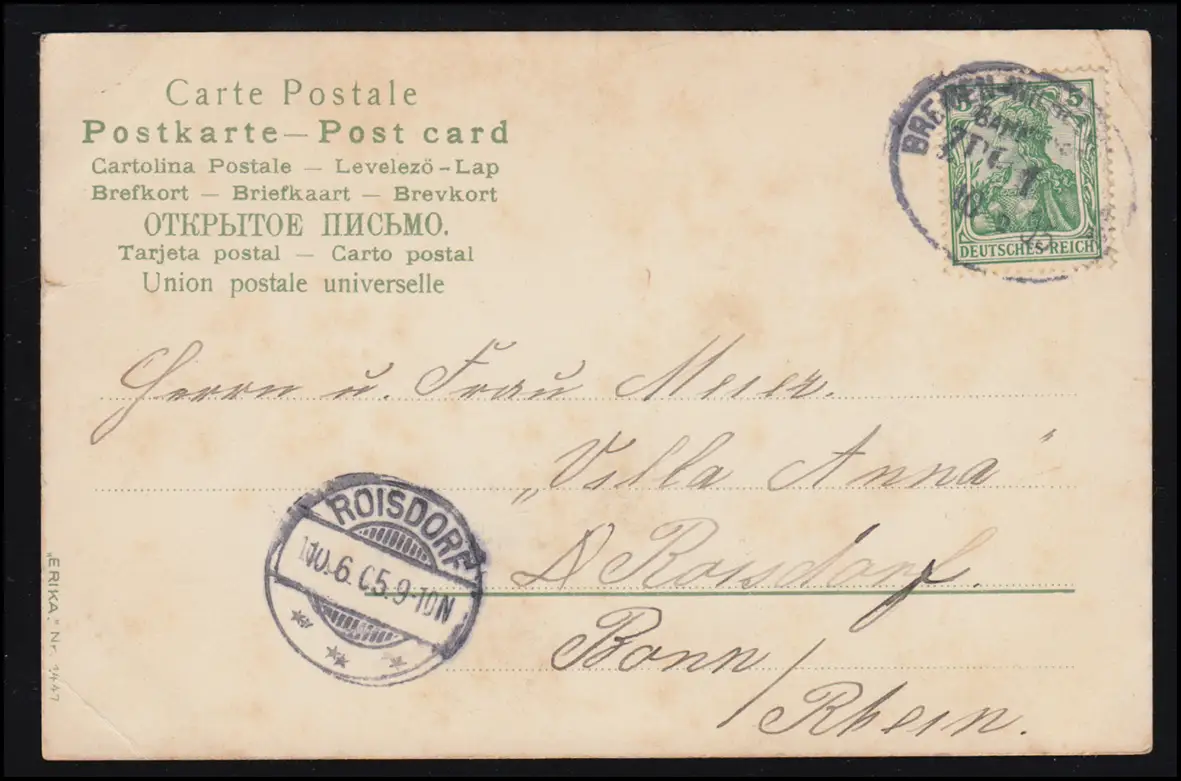 Carte Postale
Postkarte — Post card
Cartolina Postale — Levelező - Lap
Brefkort — Briefkaart — Brevkort
ОТКРЫТОЕ ПИСЬМО.
Tarjeta postal — Carto postal
Union postale universelle
5
DEUTSCHES REICH
BREMEN
ZUG 1
10
Herrn u. Frau Meier.
„Villa Anna"
Roisdorf.
Bonn/
Rhein.
ROISDORF
10.6.05.9-10N
„ERIKA." Nr. 1447